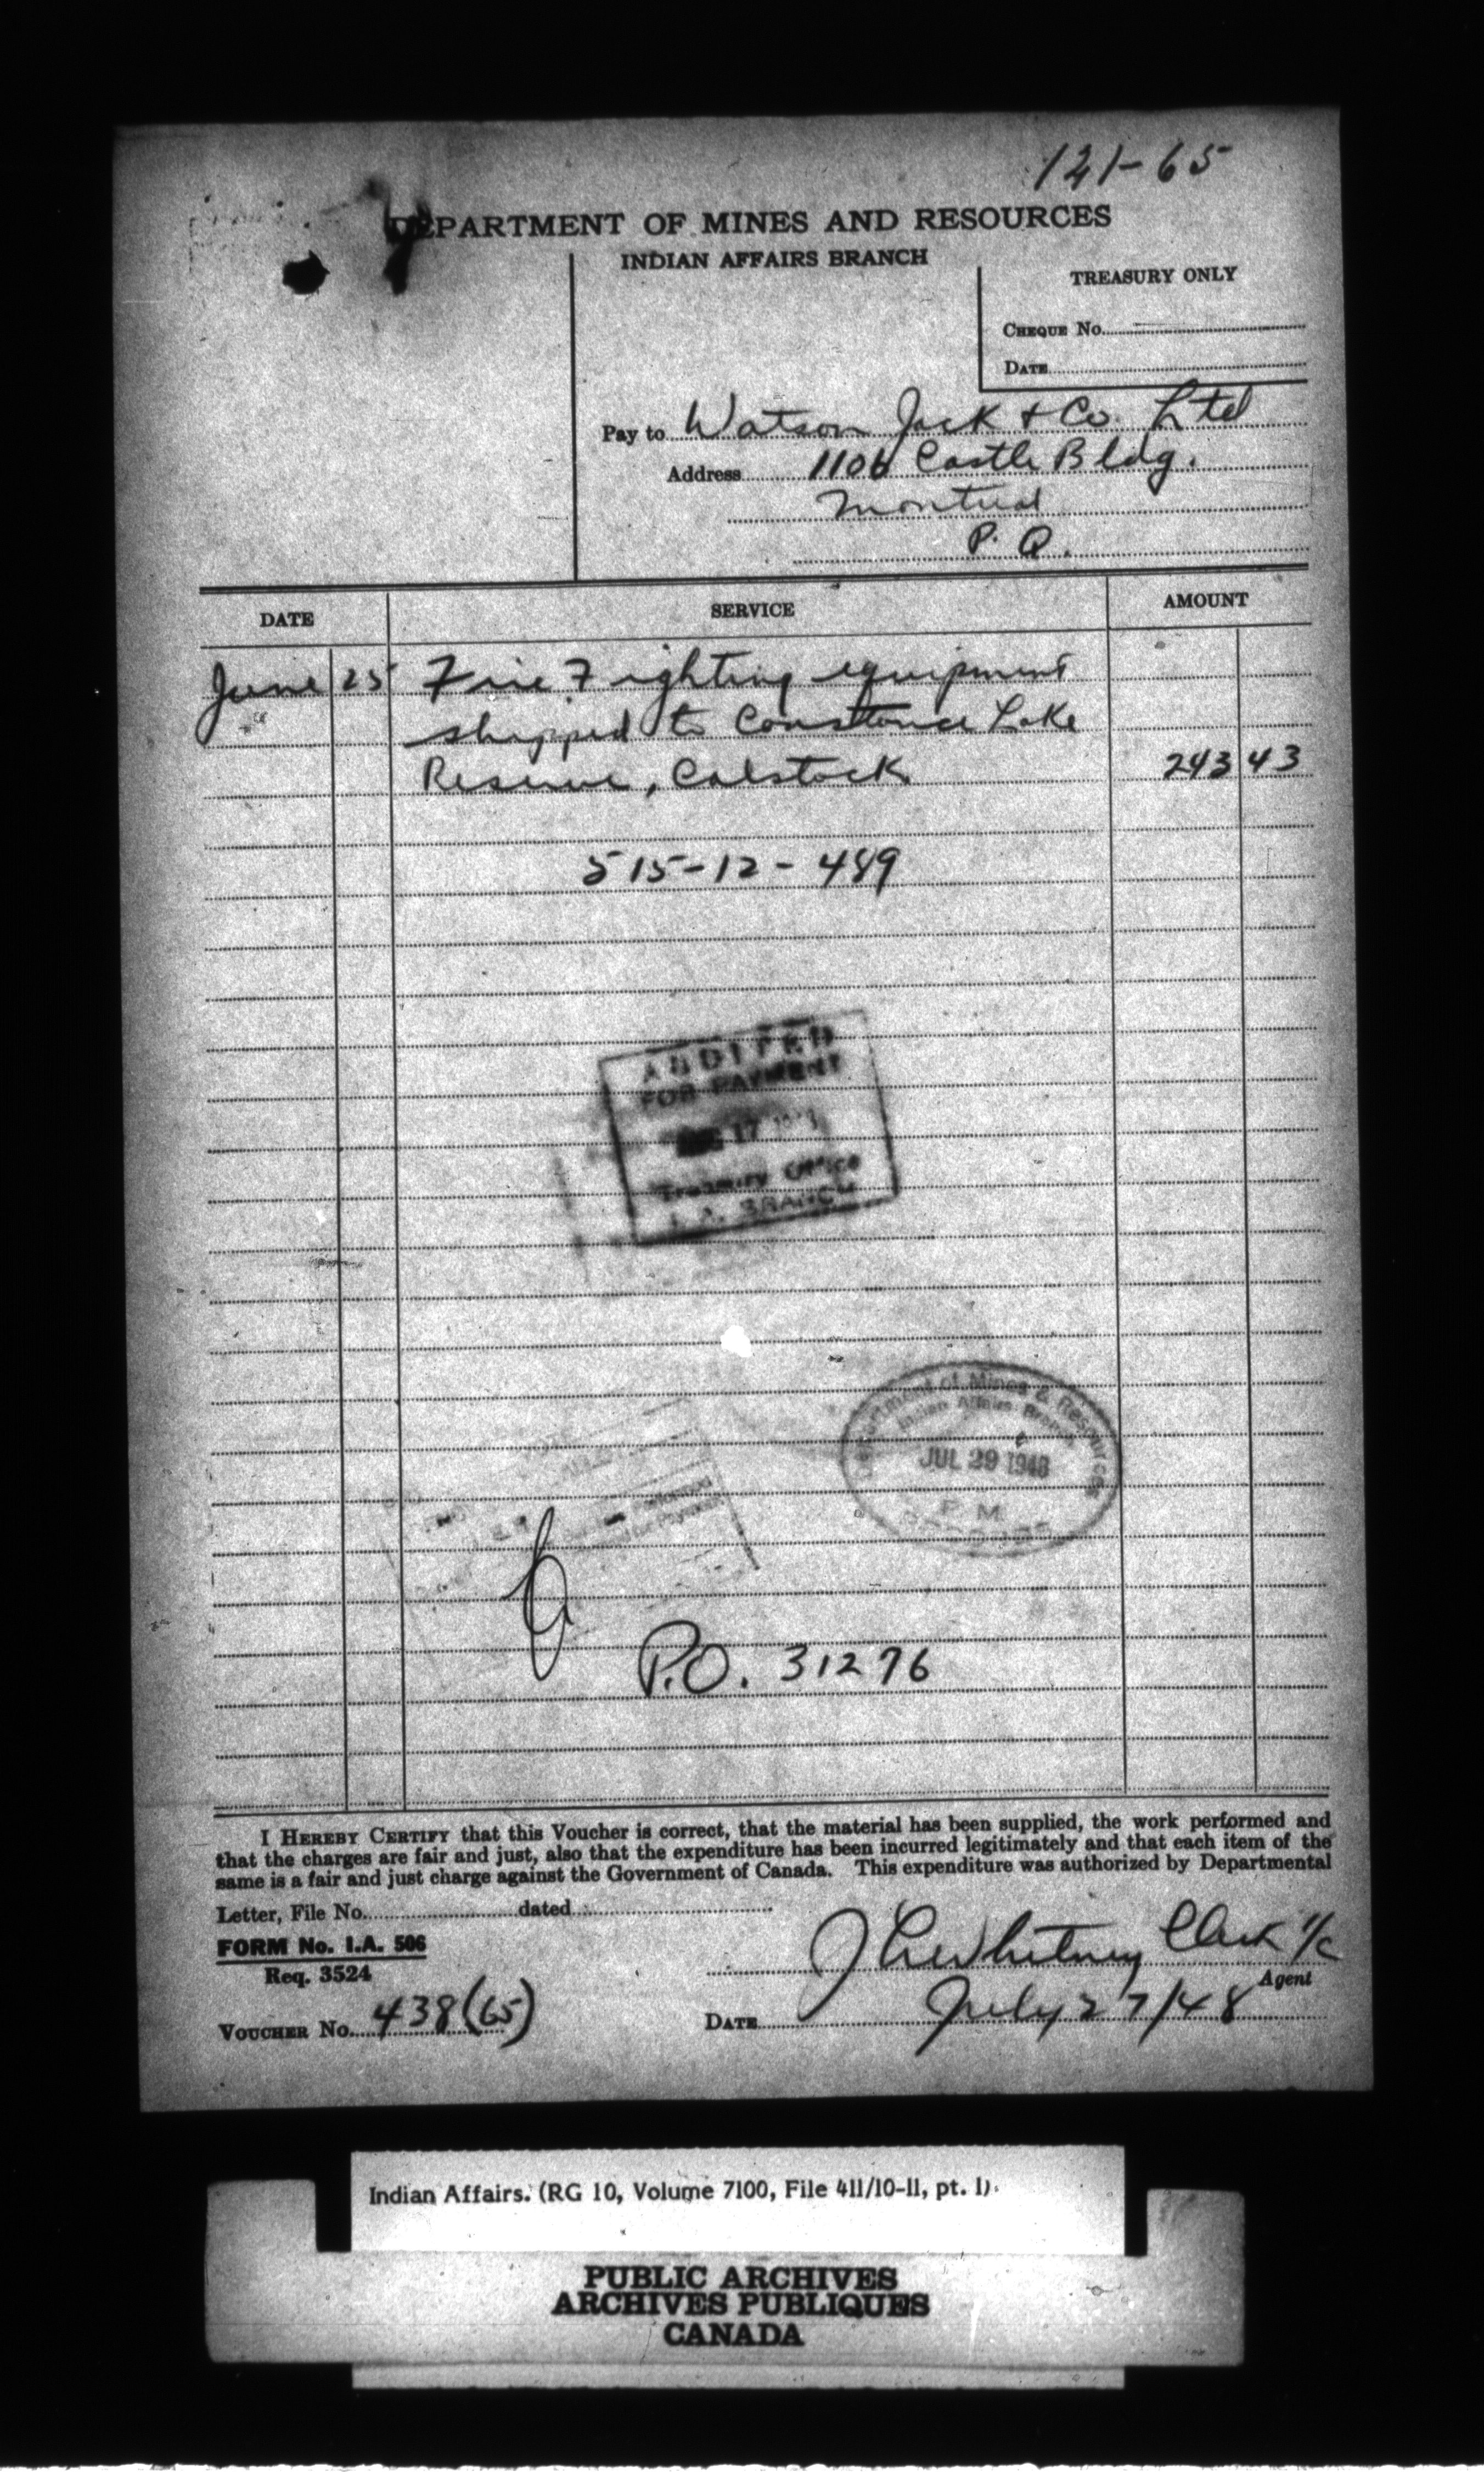 121-65
DEPARTMENT OF MINES AND RESOURCES
INDIAN AFFAIRS BRANCH
TREASURY ONLY
CHEQUE No.
DATE
Pay to Watson Jack & Co. Ltd
Address 1106 Castle Bldg.
Montreal
P. Q.
DATE SERVICE AMOUNT
June 25 Fire Fighting equipment
shipped to Constance Lake
Reserve, Calstock 243 43
515-12-489
AUDITED
FOR PAYMENT
17
Treasury Office
I. A. BRANCH
Department of Mines & Resources
Indian Affairs Branch
JUL 29 1948
P M
P.O. 31276
I HEREBY CERTIFY that this Voucher is correct, that the material has been supplied, the work performed and
that the charges are fair and just, also that the expenditure has been incurred legitimately and that each item of the
same is a fair and just charge against the Government of Canada. This expenditure was authorized by Departmental
Letter, File No. dated
FORM No. I.A. 506
Req. 3524
Whitney Clerk I/C
Agent
VOUCHER No. 438(65)
DATE July 27/48
Indian Affairs. (RG 10, Volume 7100, File 411/10-11, pt. 1)
PUBLIC ARCHIVES
ARCHIVES PUBLIQUES
CANADA